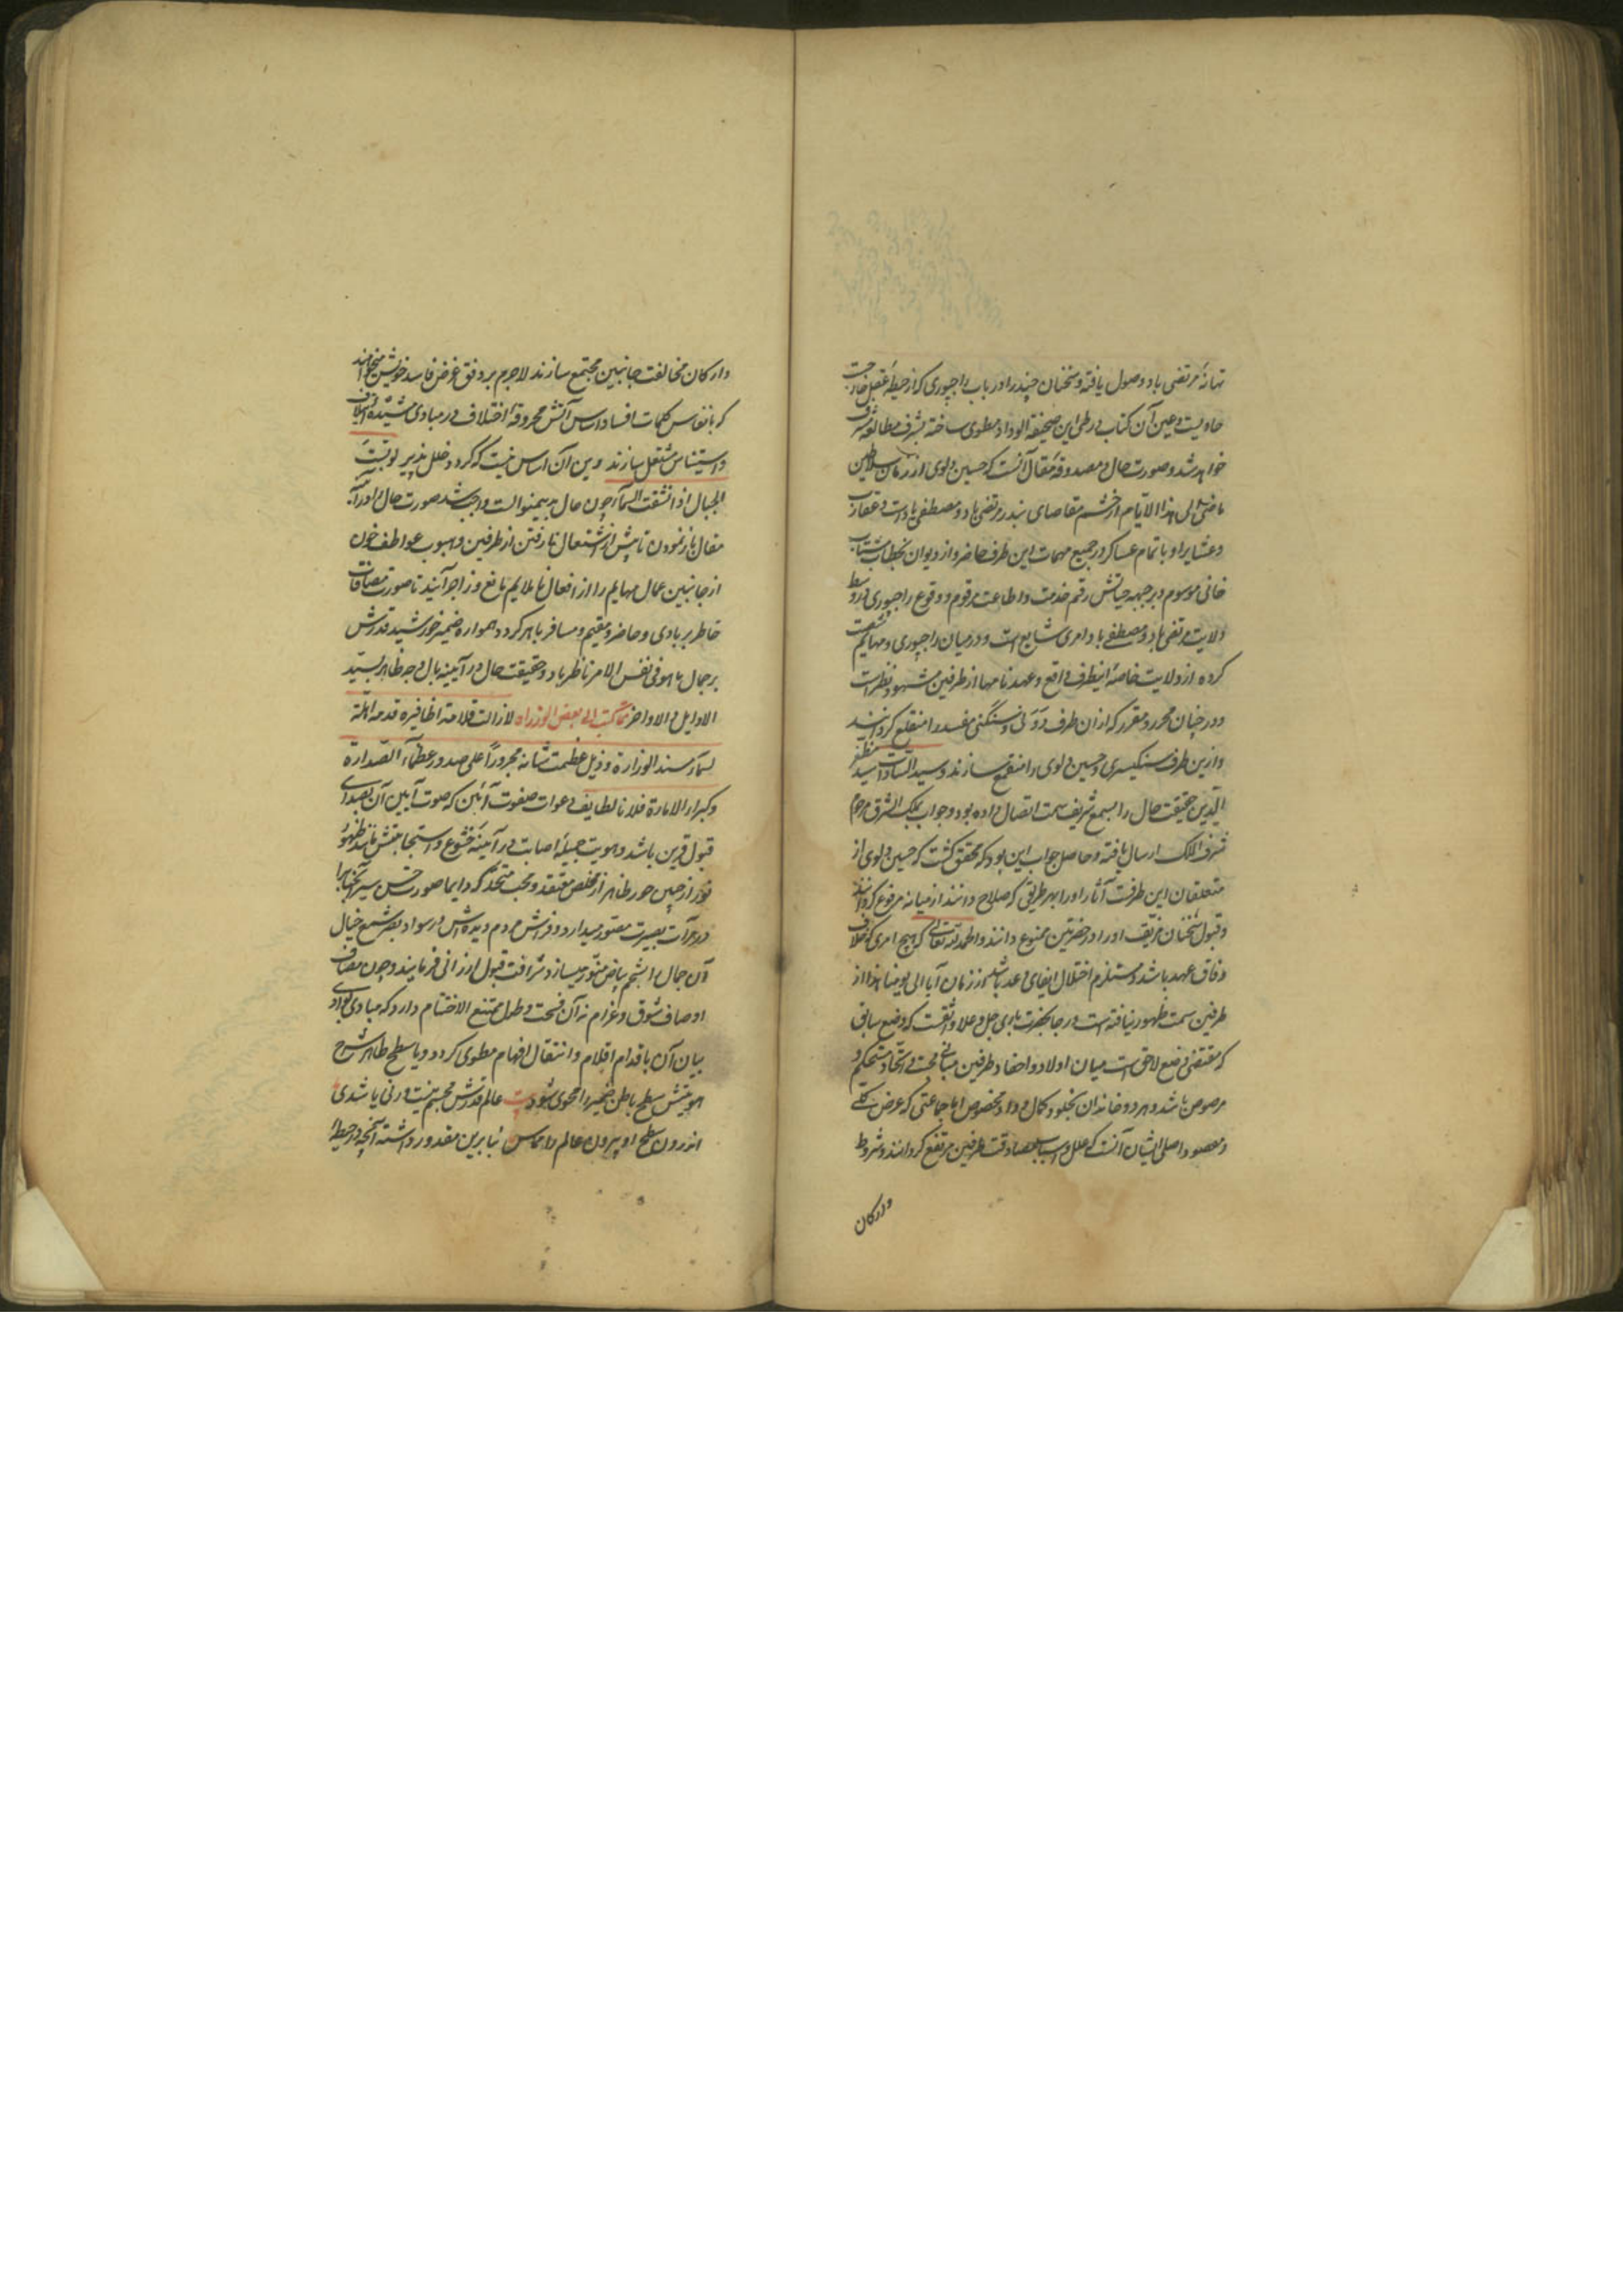 تهانهٔ مرتضی باد وصول یافته و سخنان چند را در باب راجپوری که از حیطهٔ عقل خارجست
حاویست و عین آن کتاب در طی این صحیفة الوداد مطوی ساخته بشرف مطالعه مشرف
خواهد شد و صورت حال و مصدوقهٔ مقال آنست که حسین دلوی از زمان سلاطین
ماضی الی هذا الایام از حشم مقاصای بندر مرتضی باد و مصطفی باد است و عقار
و عشایر او با تمام عساکر در جمیع مهمات این طرف حاضر و از دیوان بخطاب مستطاب
خانی موسوم و بر جبهه حیاتش رقم خدمت و اطاعت مرقوم و وقوع راجپوری در وسط
ولایت مرتضی باد و مصطفی باد امری شایع است و در میان راجپوری و مهایم
کرده از ولایت خاصهٔ اینطرف واقع و عهدنامها از طرفین مشهود نظر است
و در چنان محرر و مقرر که از ان طرف مفسد را منقلع گردانند
و ازین طرف سنگیسری و حسین دلوی را منقمع سازند و سید السادات سید مظفر
الدین حقیقت حال را بسمع شریف سمت اتصال داده بود و جواب بملک الشرق مرحوم
شرف الملک ارسال یافته و حاصل جواب این بود که محقق گشت که حسین دلوی از
متعلقان این طرفست آثار او را بهر طریقی که صلاح دانند از میانه مرفوع گردانند
و قبول سخنان مزیف او را در حضرتین ممنوع دانند و الحمد لله تعالی که هیچ امری که خلاف
وفاق عهد باشد و مستلزم اختلال ایفای وعد باشد از زمان آبا الی یومنا هذا از
طرفین سمت ظهور نیافته است و رجا بحضرت باری جل و علا واثقست که وضع سابق
که مقتضی وضع لاحق است میان اولاد و احفاد طرفین مبانی محبت و اتحاد مستحکم و
مرصوص باشد و هر دو خاندان بخلود کمال وداد مخصوص اما جماعتی که عرض کلی
و مقصود اصلی ایشان آنست که علل و اسباب مصادقت طرفین مرتفع گردانند و شروط
وارکان
وارکان مخالفت جانبین مجتمع سازند لاجرم بر وفق غرض فاسد خویش میخواهند
که بانفاس کلمات افساد اساس آتش محروقهٔ اختلاف در مبادی مشیدهٔ ایتلاف
و استیناس مشتعل سازند و این آن اساس نیست که گردد خلل پذیر لو بست
الجبال اذا انشقت السماء چون حال بدینمنوالست واجب شد صورت حال را در آینه
مقال باز نمودن تا پیش از اشتعال نار فتن از طرفین و هبوب عواطف خون
از جانبین عمال مهایم را از افعال ناملایم مانع و زاجر آیند تا صورت مصافات
خاطر بر بادی و حاضر و مقیم و مسافر باهر گردد همواره ضمیر خورشید قدرش
بر جمال ما هو فی نفس الامر ناظر باد و حقیقت حال در آیینه بال وجه ظاهر بسید
الاوایل و الاواخر مما کتب الی بعض الوزراء لا زالت قلامة اظافیره قدمه اهلة
لسماء مسند الوزارة و ذیل عظمت شانه مجرورا علی صدور عظماء الصدارة
و کبراء الامارة فلانا لطایف دعوات صفوت آئین که صوت آمین آن بصدای
قبول قرین باشد و هویت جمیلهٔ اصابت در آیینهٔ خشوع و استجابتش مانند ظهور
نور از جبین حور ظاهر از مخلص معتقد و محب متحد که دایما صورت حسن سیر آنجناب را
در مرآت بصیرت مصور میدارد و فرش مردم دیده اش در سواد بصر شمع خیال
آن جمال را بشحم بیاض منور میسازد شرافت قبول ارزانی فرمایند و چون مصاف
اوصاف شوق و غرام نه آن فسحت و طول ممتنع الاختتام دارد که مبادی بوادی
بیان آن باقدام اقلام و انتقال افهام مطوی گردد و یا سطح ظاهر شرح
هویتش سطح باطن ضمیر را محوی شود بیت عالم قدرش مجسم نیست ورنی یا شدی
اندرون سطح او بیرون عالم را مماس بنا برین مقدور داشته آنچه در حیطهٔ